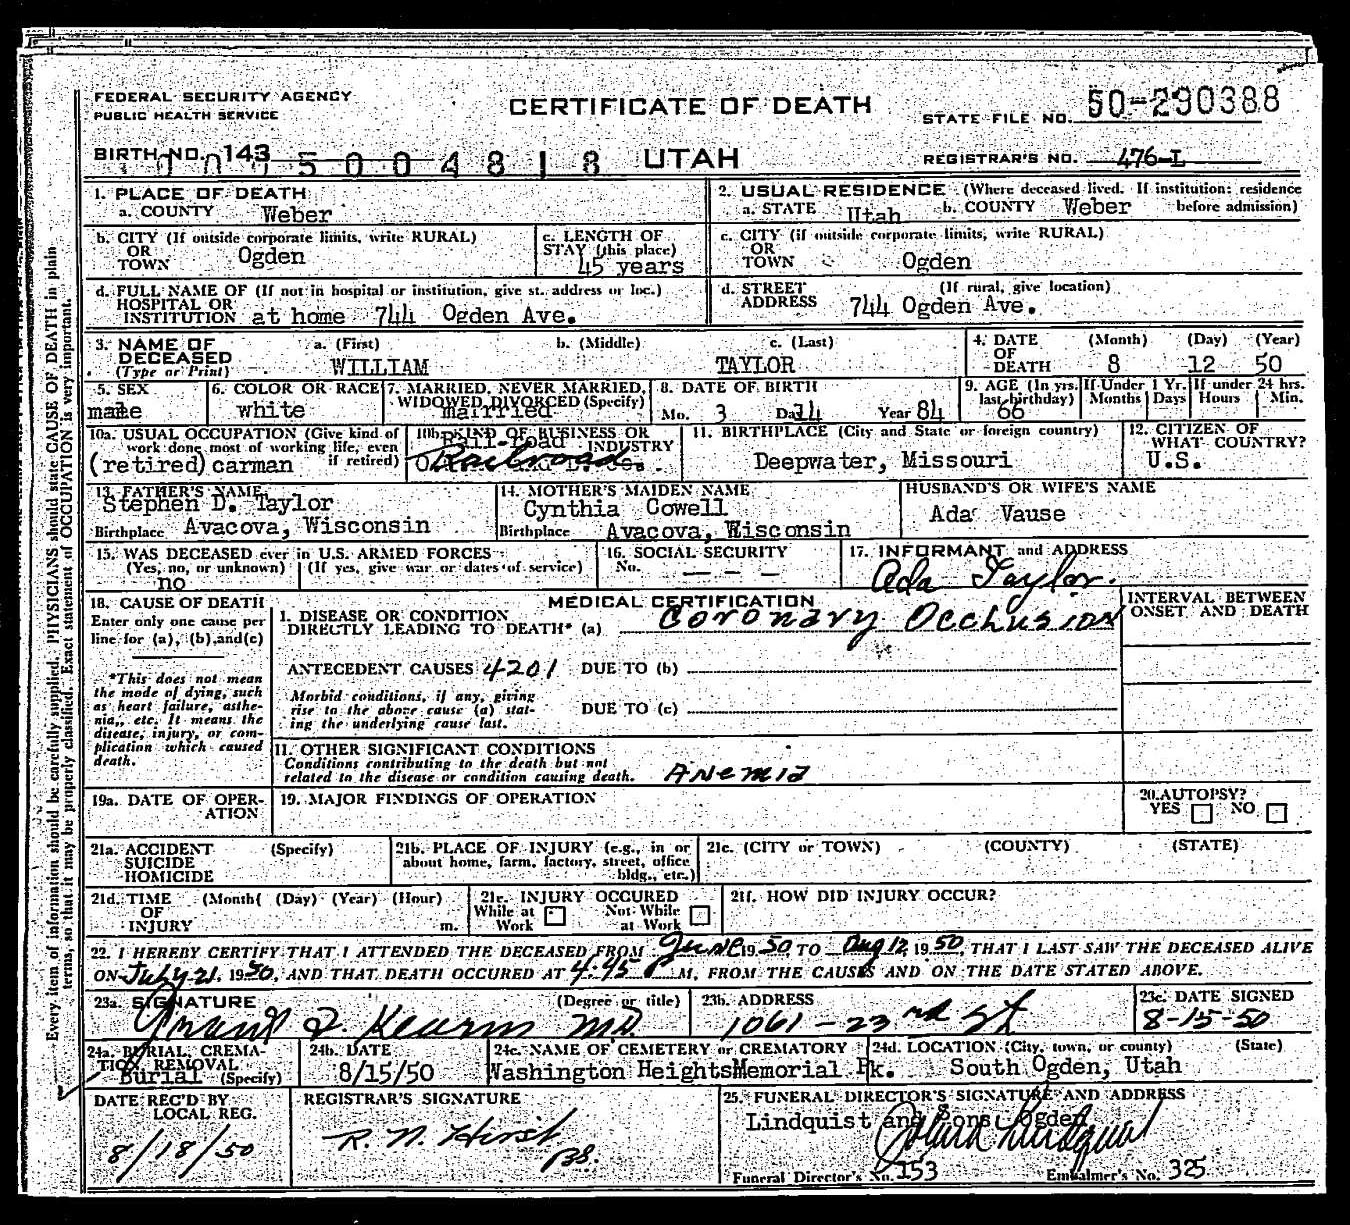 FEDERAL SECURITY AGENCY
PUBLIC HEALTH SERVICE
CERTIFICATE OF DEATH
STATE FILE NO. 50-290388
BIRTH NO. 143 5004818 UTAH
REGISTRAR'S NO. 476-L
1. PLACE OF DEATH
a. COUNTY Weber
2. USUAL RESIDENCE (Where deceased lived. If institution: residence before admission)
a. STATE Utah b. COUNTY Weber
b. CITY (If outside corporate limits, write RURAL)
OR
TOWN Ogden
c. LENGTH OF
STAY (this place)
45 years
c. CITY (if outside corporate limits, write RURAL)
OR
TOWN Ogden
d. FULL NAME OF (If not in hospital or institution, give st. address or loc.)
HOSPITAL OR
INSTITUTION at home 744 Ogden Ave.
d. STREET (If rural, give location)
ADDRESS 744 Ogden Ave.
3. NAME OF DECEASED (Type or Print)
a. (First) b. (Middle) c. (Last)
WILLIAM TAYLOR
4. DATE OF DEATH (Month) (Day) (Year)
8 12 50
5. SEX
male
6. COLOR OR RACE
white
7. MARRIED, NEVER MARRIED,
WIDOWED DIVORCED (Specify)
married
8. DATE OF BIRTH
Mo. 3 Day 14 Year 84
9. AGE (In yrs. last birthday)
66
If Under 1 Yr.
Months Days
If under 24 hrs.
Hours Min.
10a. USUAL OCCUPATION (Give kind of
work done most of working life, even
if retired)
(retired) carman
10b. KIND OF BUSINESS OR
INDUSTRY
Railroad
11. BIRTHPLACE (City and State or foreign country)
Deepwater, Missouri
12. CITIZEN OF
WHAT COUNTRY?
U.S.
13. FATHER'S NAME
Stephen D. Taylor
Birthplace Avacova, Wisconsin
14. MOTHER'S MAIDEN NAME
Cynthia Cowell
Birthplace Avacova, Wisconsin
HUSBAND'S OR WIFE'S NAME
Ada Vause
15. WAS DECEASED ever in U.S. ARMED FORCES
(Yes, no, or unknown) (If yes, give war or dates of service)
no
16. SOCIAL SECURITY
No. — — —
17. INFORMANT and ADDRESS
Ada Taylor.
18. CAUSE OF DEATH
Enter only one cause per
line for (a), (b), and (c)
*This does not mean
the mode of dying, such
as heart failure, asthe-
nia, etc. It means the
disease, injury, or com-
plication which caused
death.
MEDICAL CERTIFICATION
1. DISEASE OR CONDITION
DIRECTLY LEADING TO DEATH* (a) Coronary Occlusion
ANTECEDENT CAUSES 4201 DUE TO (b)
Morbid conditions, if any, giving
rise to the above cause (a) stat-
ing the underlying cause last.
DUE TO (c)
INTERVAL BETWEEN
ONSET AND DEATH
11. OTHER SIGNIFICANT CONDITIONS
Conditions contributing to the death but not
related to the disease or condition causing death. Anemia
19a. DATE OF OPER-
ATION
19. MAJOR FINDINGS OF OPERATION
20. AUTOPSY?
YES NO
21a. ACCIDENT (Specify)
SUICIDE
HOMICIDE
21b. PLACE OF INJURY (e.g., in or
about home, farm, factory, street, office
bldg., etc.)
21c. (CITY or TOWN) (COUNTY) (STATE)
21d. TIME (Month( (Day) (Year) (Hour)
OF
INJURY m.
21e. INJURY OCCURED
While at Work Not While at Work
21f. HOW DID INJURY OCCUR?
22. I HEREBY CERTIFY THAT I ATTENDED THE DECEASED FROM June 1950, TO Aug 12, 1950, THAT I LAST SAW THE DECEASED ALIVE
ON July 21, 1950, AND THAT DEATH OCCURED AT 4:45 P M, FROM THE CAUSES AND ON THE DATE STATED ABOVE.
23a. SIGNATURE (Degree or title)
MD.
23b. ADDRESS
1061-23rd St
23c. DATE SIGNED
8-15-50
24a. BURIAL, CREMA-
TION REMOVAL
Burial (Specify)
24b. DATE
8/15/50
24c. NAME OF CEMETERY or CREMATORY
Washington Heights Memorial Pk.
24d. LOCATION (City, town, or county) (State)
South Ogden, Utah
DATE REC'D BY
LOCAL REG.
8/18/50
REGISTRAR'S SIGNATURE
25. FUNERAL DIRECTOR'S SIGNATURE AND ADDRESS
Lindquist and Sons Ogden
Funeral Director's No. 153 Embalmer's No. 325
Every item of information should be carefully supplied. PHYSICIANS should state CAUSE OF DEATH in plain
terms, so that it may be properly classified. Exact statement of OCCUPATION is very important.